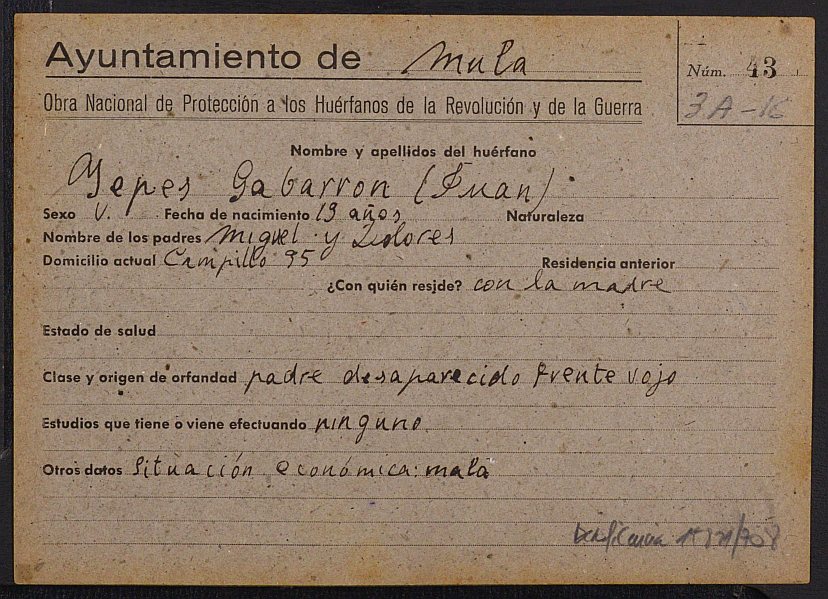 Ayuntamiento de Mula
Núm. 43
3A-16
Obra Nacional de Protección a los Huérfanos de la Revolución y de la Guerra
Nombre y apellidos del huérfano
Yepes Gabarron (Juan)
Sexo V. Fecha de nacimiento 13 años Naturaleza
Nombre de los padres Miguel y Dolores
Domicilio actual Campillo 95 Residencia anterior
¿Con quién reside? con la madre
Estado de salud
Clase y origen de orfandad padre desaparecido frente rojo
Estudios que tiene o viene efectuando ninguno.
Otros datos Situación económica: mala